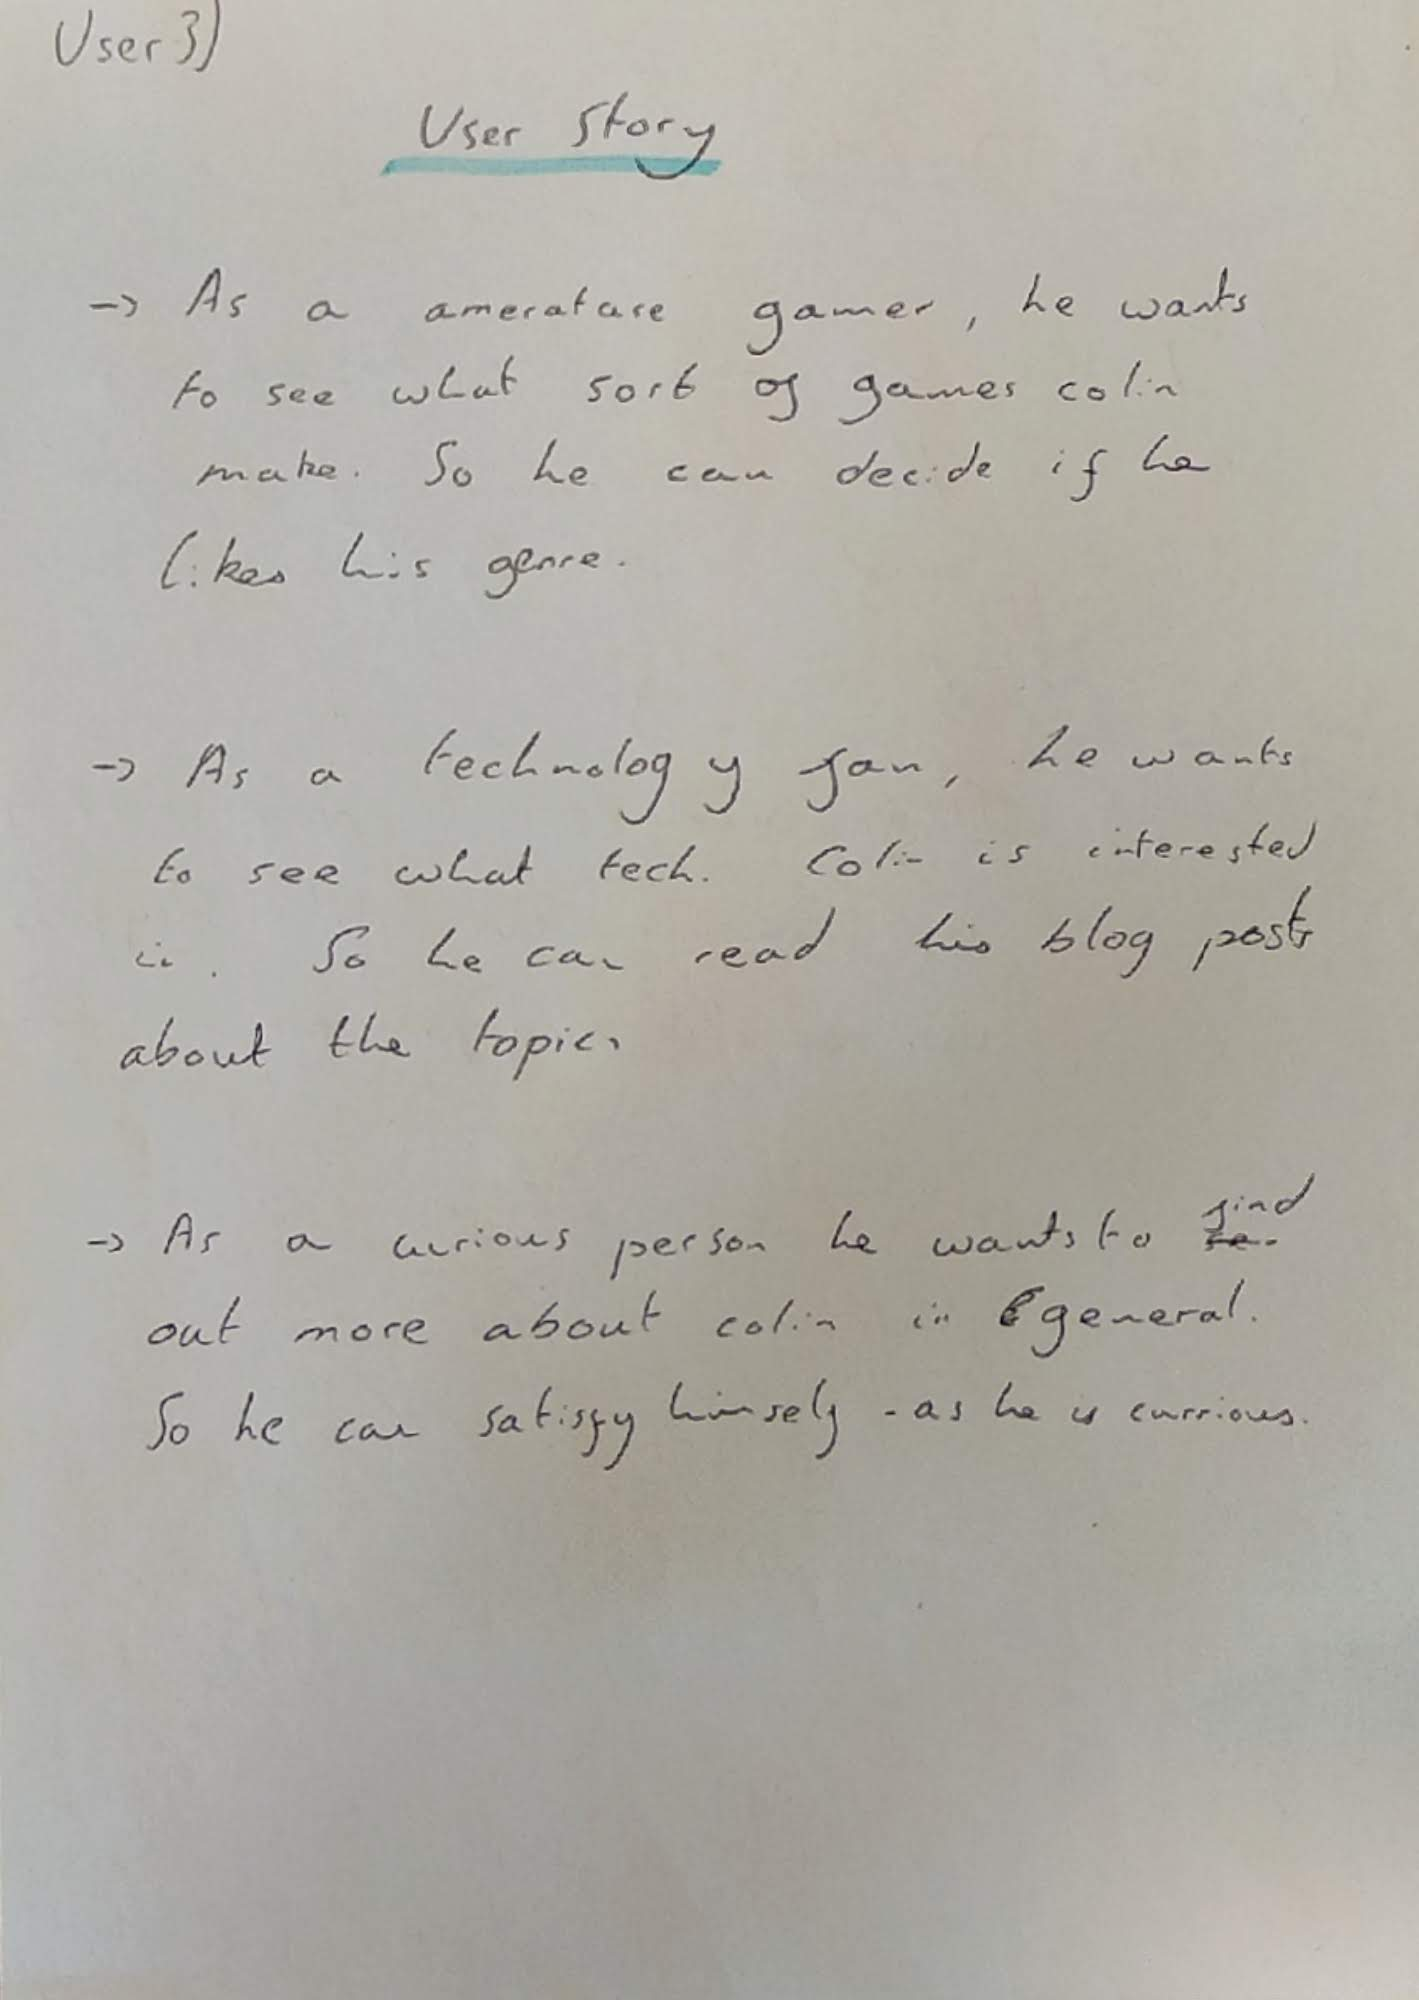 User 3)
User Story
-> As a amerature gamer, he wants
to see what sort of games colin
make. So he can decide if he
likes his genre.
-> As a technology fan, he wants
to see what tech. Colin is interested
in. So he can read his blog posts
about the topic.
-> As a curious person he wants to find
out more about colin in general.
So he can satisfy himself - as he is currious.